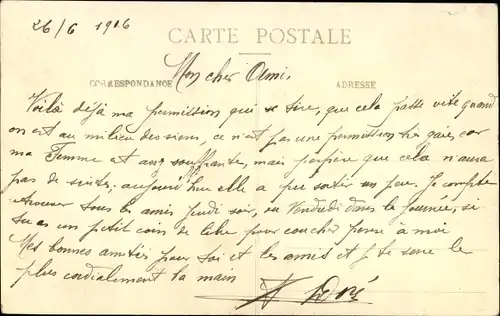 26/6 1916
CARTE POSTALE
CORRESPONDANCE
ADRESSE
Mon cher Ami,
Voilà déjà ma permission qui se tire, que cela passe vite quand
on est au milieu des siens, ce n'est pas une permission très gaie, car
ma Femme est assez souffrante, mais j'espère que cela n'aura
pas de suites, aujourd'hui elle a pu sortir un peu. Je compte
retrouver tous les amis jeudi soir, ou Vendredi dans la journée, si
tu as un petit coin de libre pour coucher pense à moi
Mes bonnes amitiés pour toi et les amis et je te serre le
plus cordialement la main